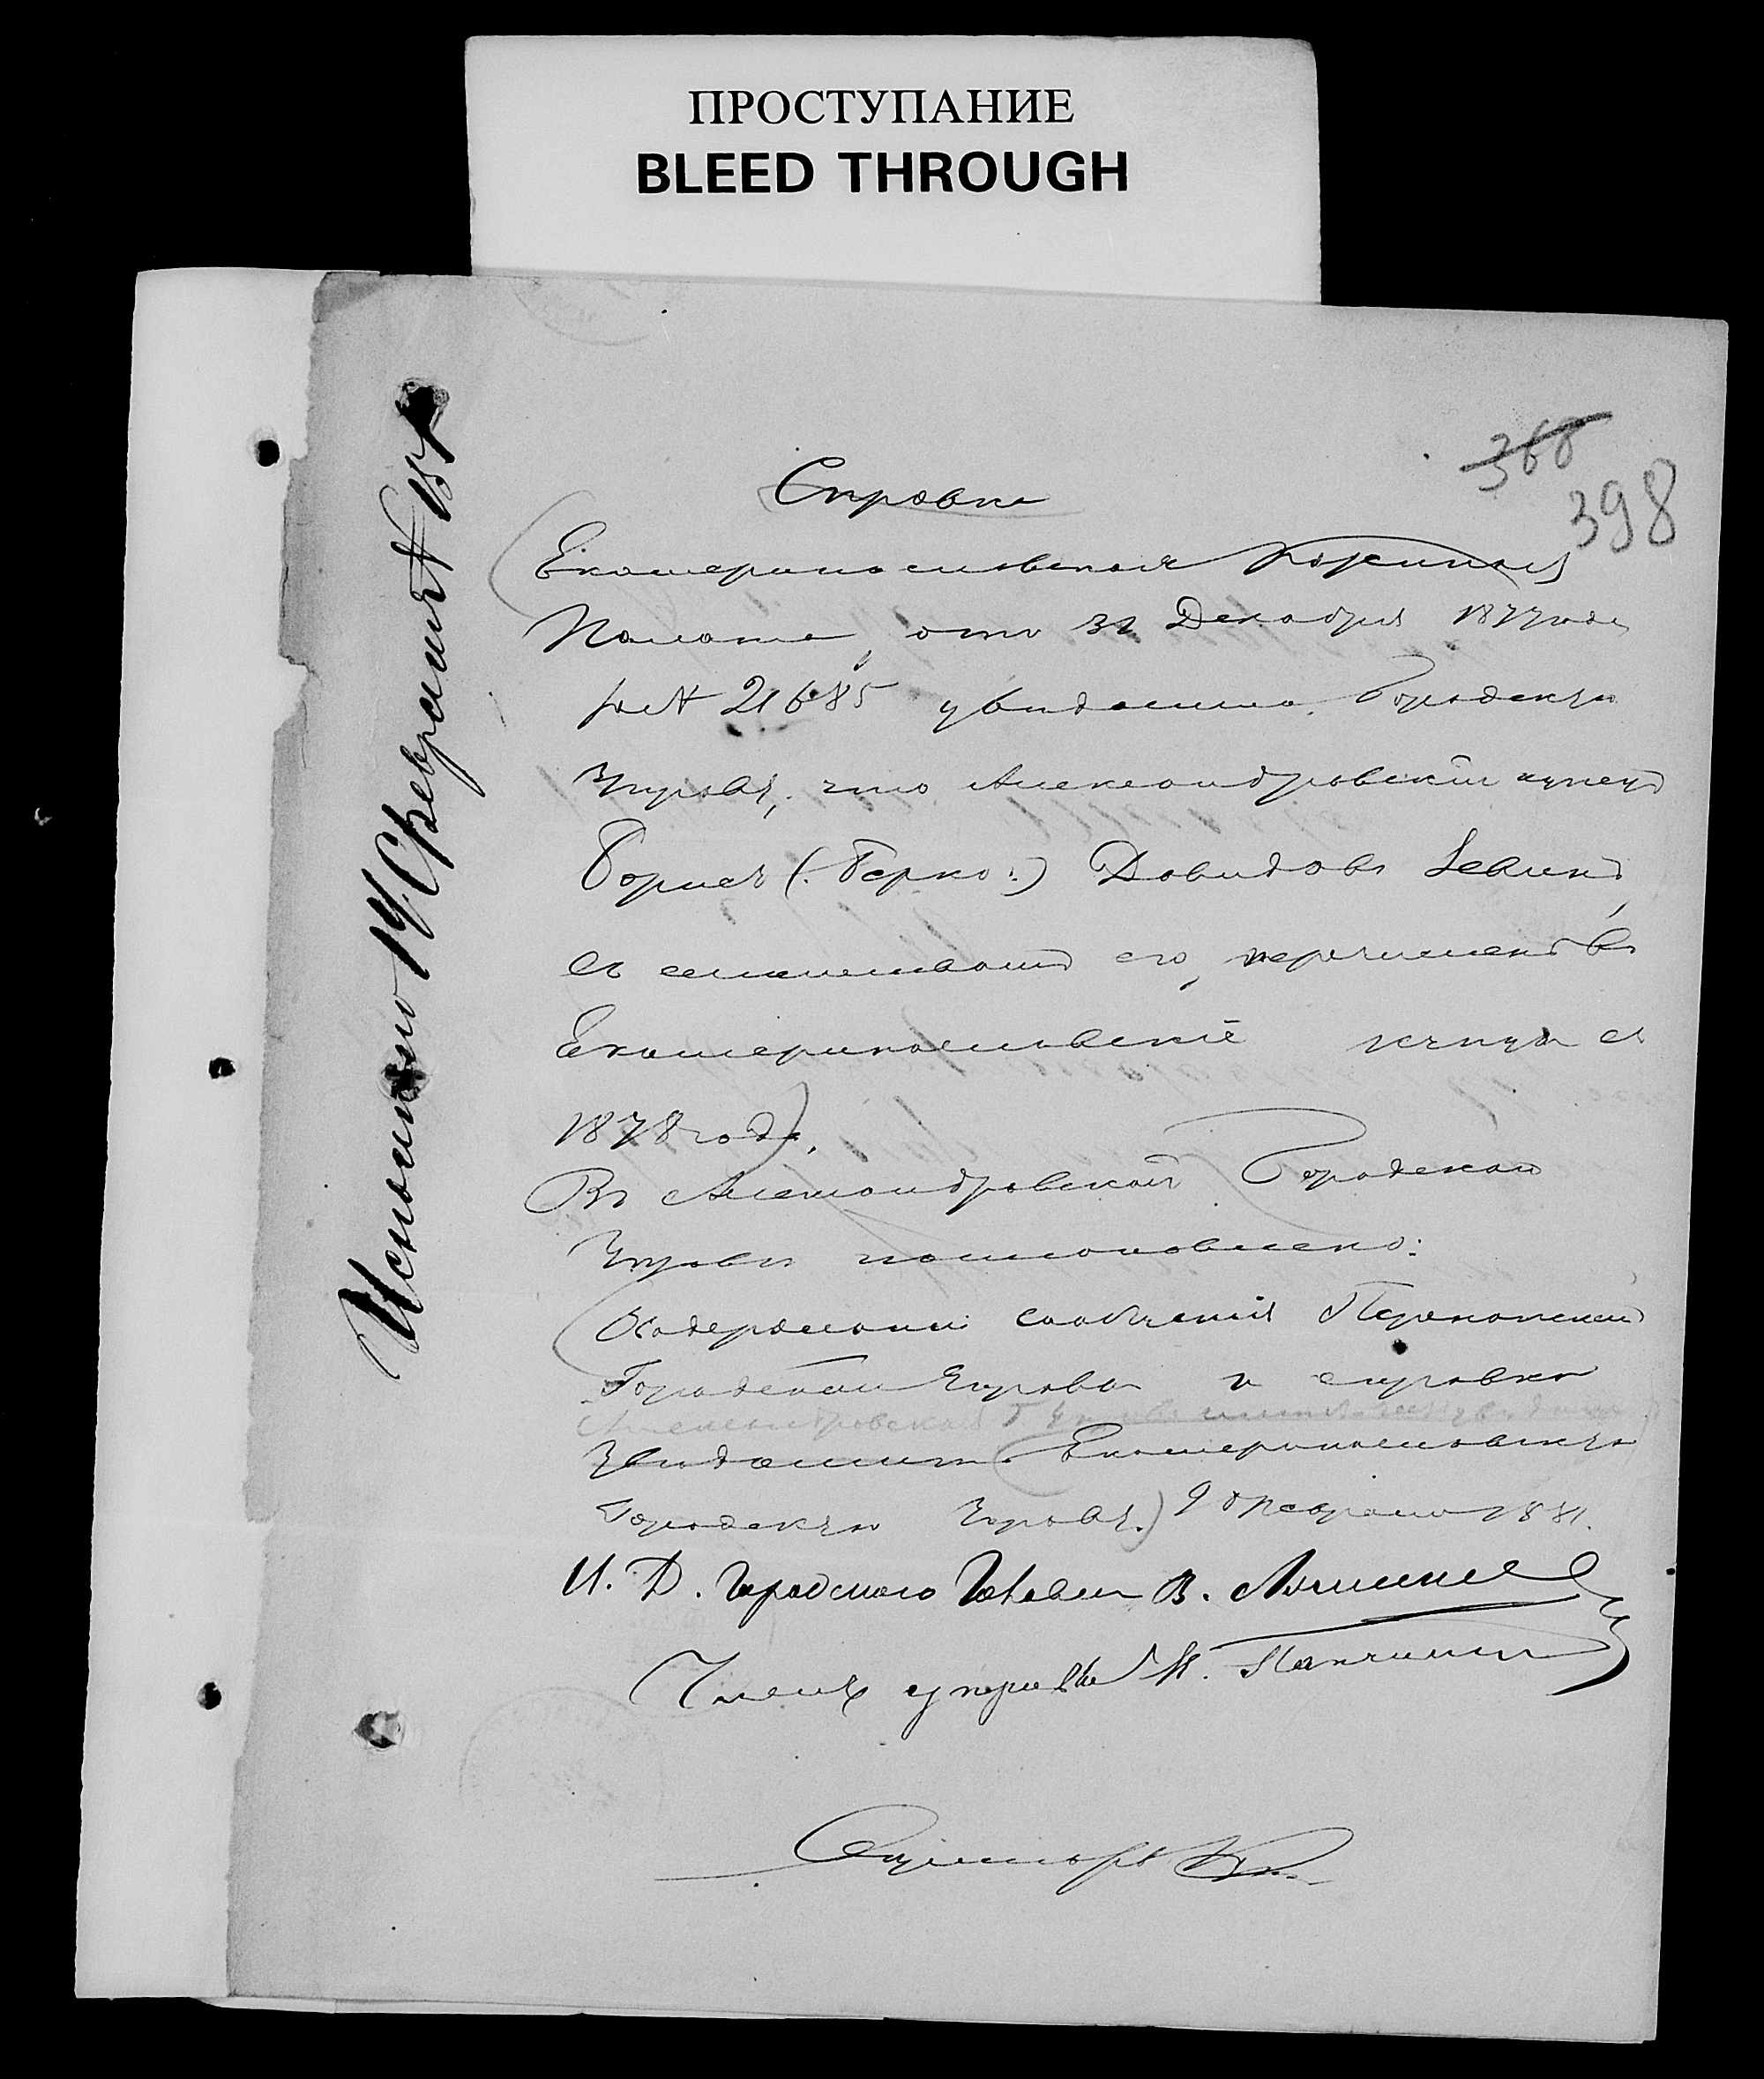 ПРОСТУПАНИЕ
BLEED THROUGH
368
398
Справка
Екатеринославская Казенная
Палата, отъ 31 Декабря 1877 года
за № 21685 увѣдомила Городскую
Управу, что Александровскій купецъ
Борисъ (: Берко :) Давидовъ Левинъ,
съ семействомъ его, перечисленъ въ
Екатеринославскіе купцы съ
1878 года),
Въ Александровской Городской
Управѣ постановлено:
О содержаніи сообщенія Перекопской
Городской Управы и справки
Александровская Г. Управа
увѣдомить (Екатеринославскую
Городскую Управу.) 9 Февраля 1881.
И. Д. Городского Головы В.
Членъ управы
Секретарь
Исполнено 14 Февраля №